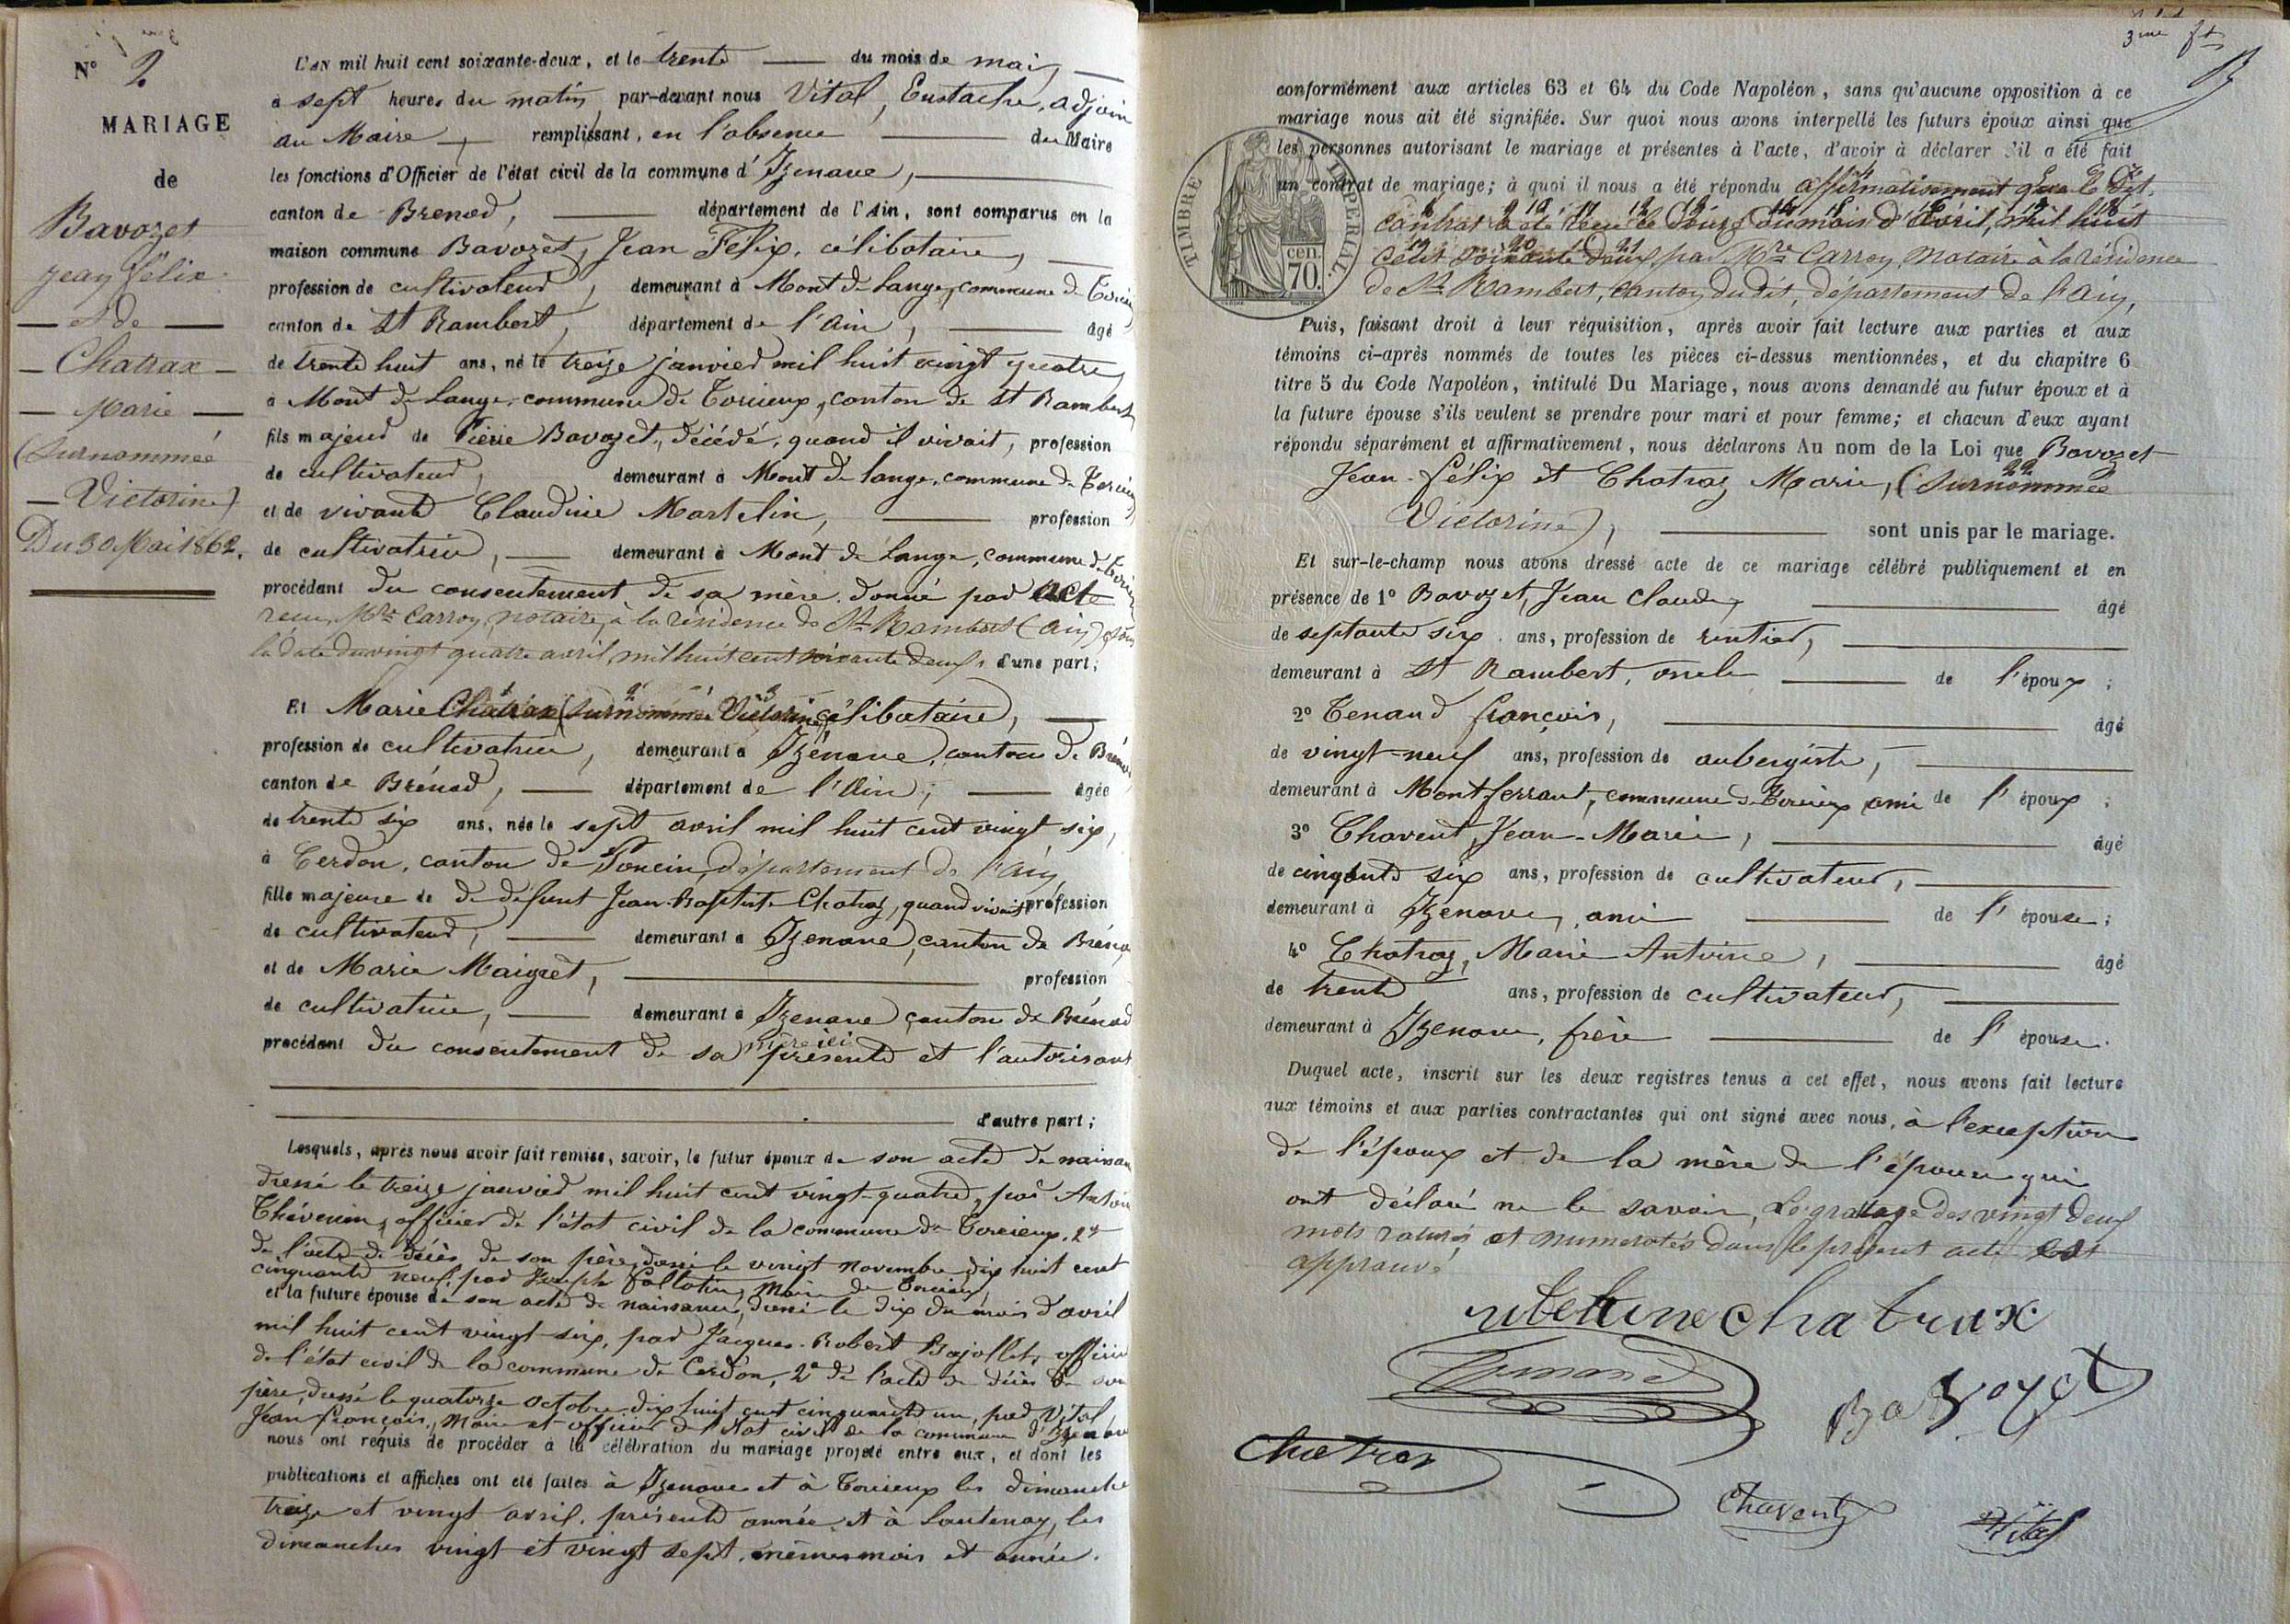 N° 2
MARIAGE
de
Bavozet
Jean Félix
et de
Chatrax
Marie
(Surnommée
Victorine)
Du 30 Mai 1862.
L'AN mil huit cent soixante-deux, et le trente du mois de mai,
à sept heures du matin par-devant nous Vital, Eustache, adjoin
au Maire, remplissant, en l'absence du Maire
les fonctions d'Officier de l'état civil de la commune d'Izenave,
canton de Brenod, département de l'Ain, sont comparus en la
maison commune Bavozet, Jean Felix, célibataire,
profession de cultivateur, demeurant à Mont de Lange, commune de Torcieu
canton de St Rambert, département de l'Ain, âgé
de trente huit ans, né le treize janvier mil huit vingt quatre
à Mont de Lange, commune de Torcieux, canton de St Rambert
fils majeur de Pierre Bavozet, décédé, quand il vivait, profession
de cultivateur, demeurant à Mont de Lange, commune de Torcieu
et de vivante Claudine Martelin, profession
de cultivatrice, demeurant à Mont de Lange, commune de Torcieu
procédant du consentement de sa mère, donné par acte
reçu Mre Carroy, notaire, à la résidence de St Rambert (Ain) sous
la date du vingt quatre avril, mil huit cent soixante deux, d'une part;
Et Marie Chatrax (surnommée Victorine) célibataire,
profession de cultivatrice, demeurant à Izénave, canton de Bréno
canton de Brénod, département de l'Ain, âgée
de trente six ans, née le sept avril mil huit cent vingt six,
à Cerdon, canton de Poncin, département de l'Ain
fille majeure de de défunt Jean-Baptiste Chatrax, quand vivait profession
de cultivateur, demeurant à Izenave, canton de Bréno
et de Marie Maigret, profession
de cultivatrice, demeurant à Izenave canton de Brénod
procédant du consentement de sa mère ici présente et l'autorisant
d'autre part;
Lesquels, après nous avoir fait remise, savoir, le futur époux de son acte de naissan
dressé le treize janvier mil huit cent vingt-quatre, par Antoin
Thévenin, officier de l'état civil de la commune de Torcieux, 2°
de l'acte de décès de son père, dressé le vingt novembre dix huit cent
cinquante neuf, par Joseph Gallatin, Maire de Torcieux,
et la future épouse de son acte de naissance, dressé le dix du mois d'avril
mil huit cent vingt-six, par Jacques-Robert Bajollet, officier
de l'état civil de la commune de Cerdon, 2° de l'acte de décès de son
père, dressé le quatorze octobre dix huit cent cinquante un, par Vital
Jean François, Maire et officier de l'état civil de la commune d'Izenave
nous ont requis de procéder à la célébration du mariage projeté entre eux, et dont les
publications et affiches ont été faites à Izenave et à Torcieux les dimanche
treize et vingt avril, présente année et à Lantenay, les
dimanches vingt et vingt sept, mêmes mois et année.
3me ft
conformément aux articles 63 et 64 du Code Napoléon, sans qu'aucune opposition à ce
mariage nous ait été signifiée. Sur quoi nous avons interpellé les futurs époux ainsi que
les personnes autorisant le mariage et présentes à l'acte, d'avoir à déclarer s'il a été fait
un contrat de mariage; à quoi il nous a été répondu affirmativement que le dit
contrat a été reçu le douze du mois d'Avril, mil huit
cent soixante deux, par Mre Carroy, notaire à la résidence
de St Rambert, canton du dit, département de l'Ain,
TIMBRE IMPÉRIAL
70 cen.
Puis, faisant droit à leur réquisition, après avoir fait lecture aux parties et aux
témoins ci-après nommés de toutes les pièces ci-dessus mentionnées, et du chapitre 6
titre 5 du Code Napoléon, intitulé Du Mariage, nous avons demandé au futur époux et à
la future épouse s'ils veulent se prendre pour mari et pour femme; et chacun d'eux ayant
répondu séparément et affirmativement, nous déclarons Au nom de la Loi que Bavozet
Jean-Félix et Chatrax Marie, (Surnommée
Victorine), sont unis par le mariage.
Et sur-le-champ nous avons dressé acte de ce mariage célébré publiquement et en
présence de 1° Bavozet, Jean Claude, âgé
de septante six ans, profession de rentier,
demeurant à St Rambert, oncle de l'époux;
2° Tenand françois, âgé
de vingt-neuf ans, profession de aubergiste,
demeurant à Montferrant, commune de Torcieux ami de l'époux;
3° Chavent, Jean-Marie, âgé
de cinqante six ans, profession de cultivateur,
demeurant à Izenave, ami de l'épouse;
4° Chatrax, Marie Antoine, âgé
de trente ans, profession de cultivateur,
demeurant à Izenave, frère de l'épouse.
Duquel acte, inscrit sur les deux registres tenus à cet effet, nous avons fait lecture
aux témoins et aux parties contractantes qui ont signé avec nous, à l'exception
de l'époux et de la mère de l'épouse qui
ont déclaré ne le savoir. Le grattage des vingt deux
mots raturés et numérotés dans le présent acte est
approuvé
chatrax
Tenand
Bavozet
Chatrax
Chavent
Vital